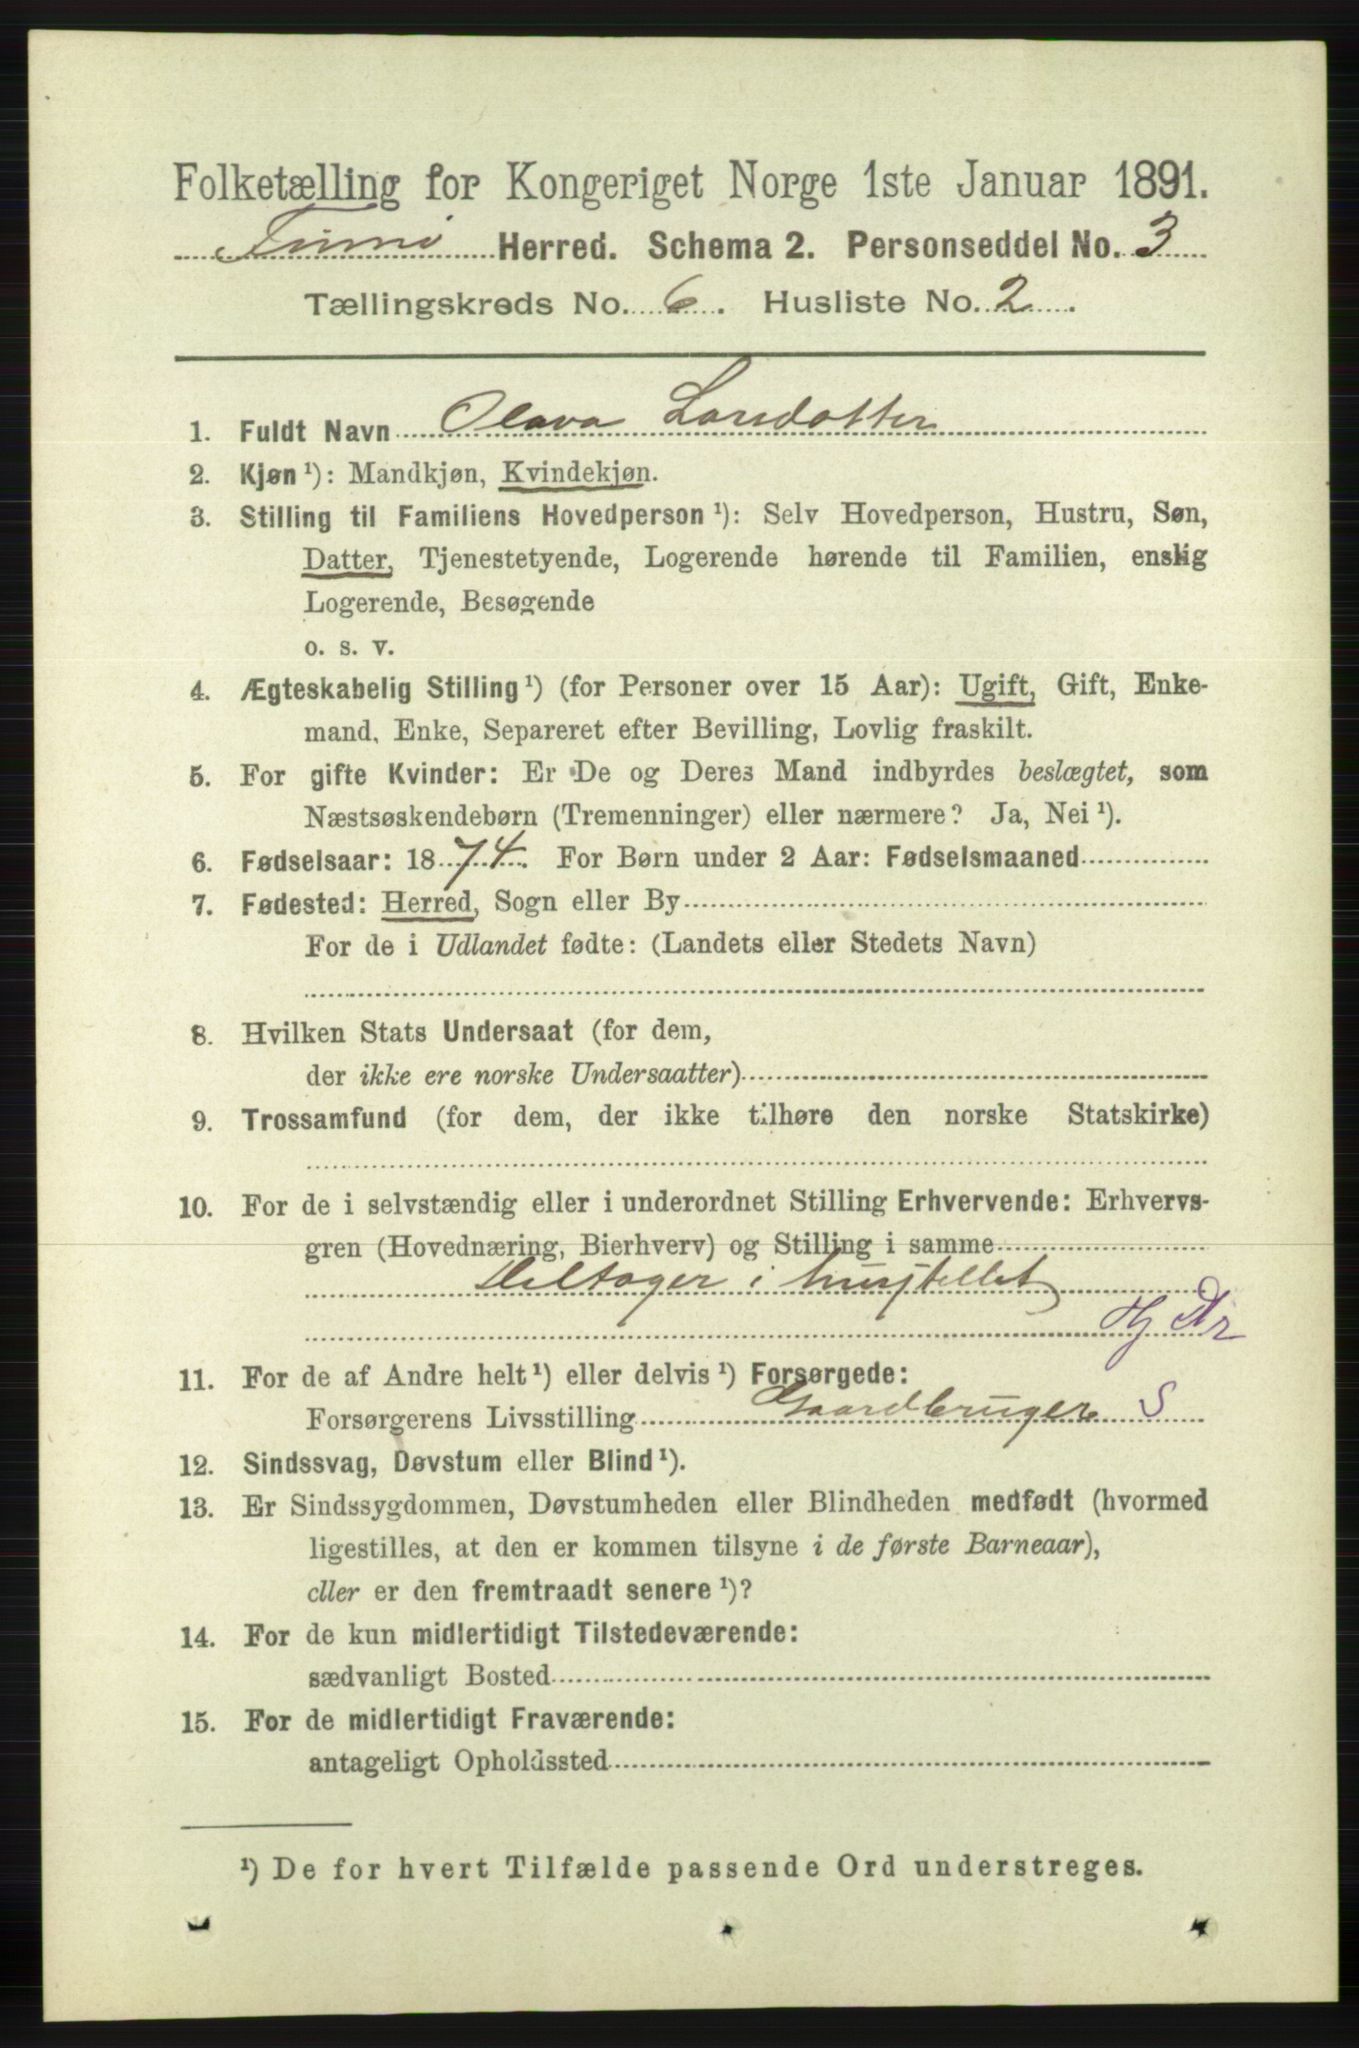 Folketælling for Kongeriget Norge 1ste Januar 1891.
Timø Herred. Schema 2. Personseddel No. 3
Tællingskreds No. 6. Husliste No. 2.
1. Fuldt Navn Olava Larsdotter
2. Kjøn ¹): Mandkjøn, Kvindekjøn.
3. Stilling til Familiens Hovedperson ¹): Selv Hovedperson, Hustru, Søn,
Datter, Tjenestetyende, Logerende hørende til Familien, enslig
Logerende, Besøgende
o. s. v.
4. Ægteskabelig Stilling ¹) (for Personer over 15 Aar): Ugift, Gift, Enke-
mand, Enke, Separeret efter Bevilling, Lovlig fraskilt.
5. For gifte Kvinder: Er De og Deres Mand indbyrdes beslægtet, som
Næstsøskendebørn (Tremenninger) eller nærmere? Ja, Nei ¹).
6. Fødselsaar: 1874. For Børn under 2 Aar: Fødselsmaaned
7. Fødested: Herred, Sogn eller By
For de i Udlandet fødte: (Landets eller Stedets Navn)
8. Hvilken Stats Undersaat (for dem,
der ikke ere norske Undersaatter)
9. Trossamfund (for dem, der ikke tilhøre den norske Statskirke)
10. For de i selvstændig eller i underordnet Stilling Erhvervende: Erhvervs-
gren (Hovednæring, Bierhverv) og Stilling i samme
Deltager i husstellet
11. For de af Andre helt ¹) eller delvis ¹) Forsørgede:
Forsørgerens Livsstilling Gaardbruger S
12. Sindssvag, Døvstum eller Blind ¹).
13. Er Sindssygdommen, Døvstumheden eller Blindheden medfødt (hvormed
ligestilles, at den er kommen tilsyne i de første Barneaar),
eller er den fremtraadt senere ¹)?
14. For de kun midlertidigt Tilstedeværende:
sædvanligt Bosted
15. For de midlertidigt Fraværende:
antageligt Opholdssted
¹) De for hvert Tilfælde passende Ord understreges.